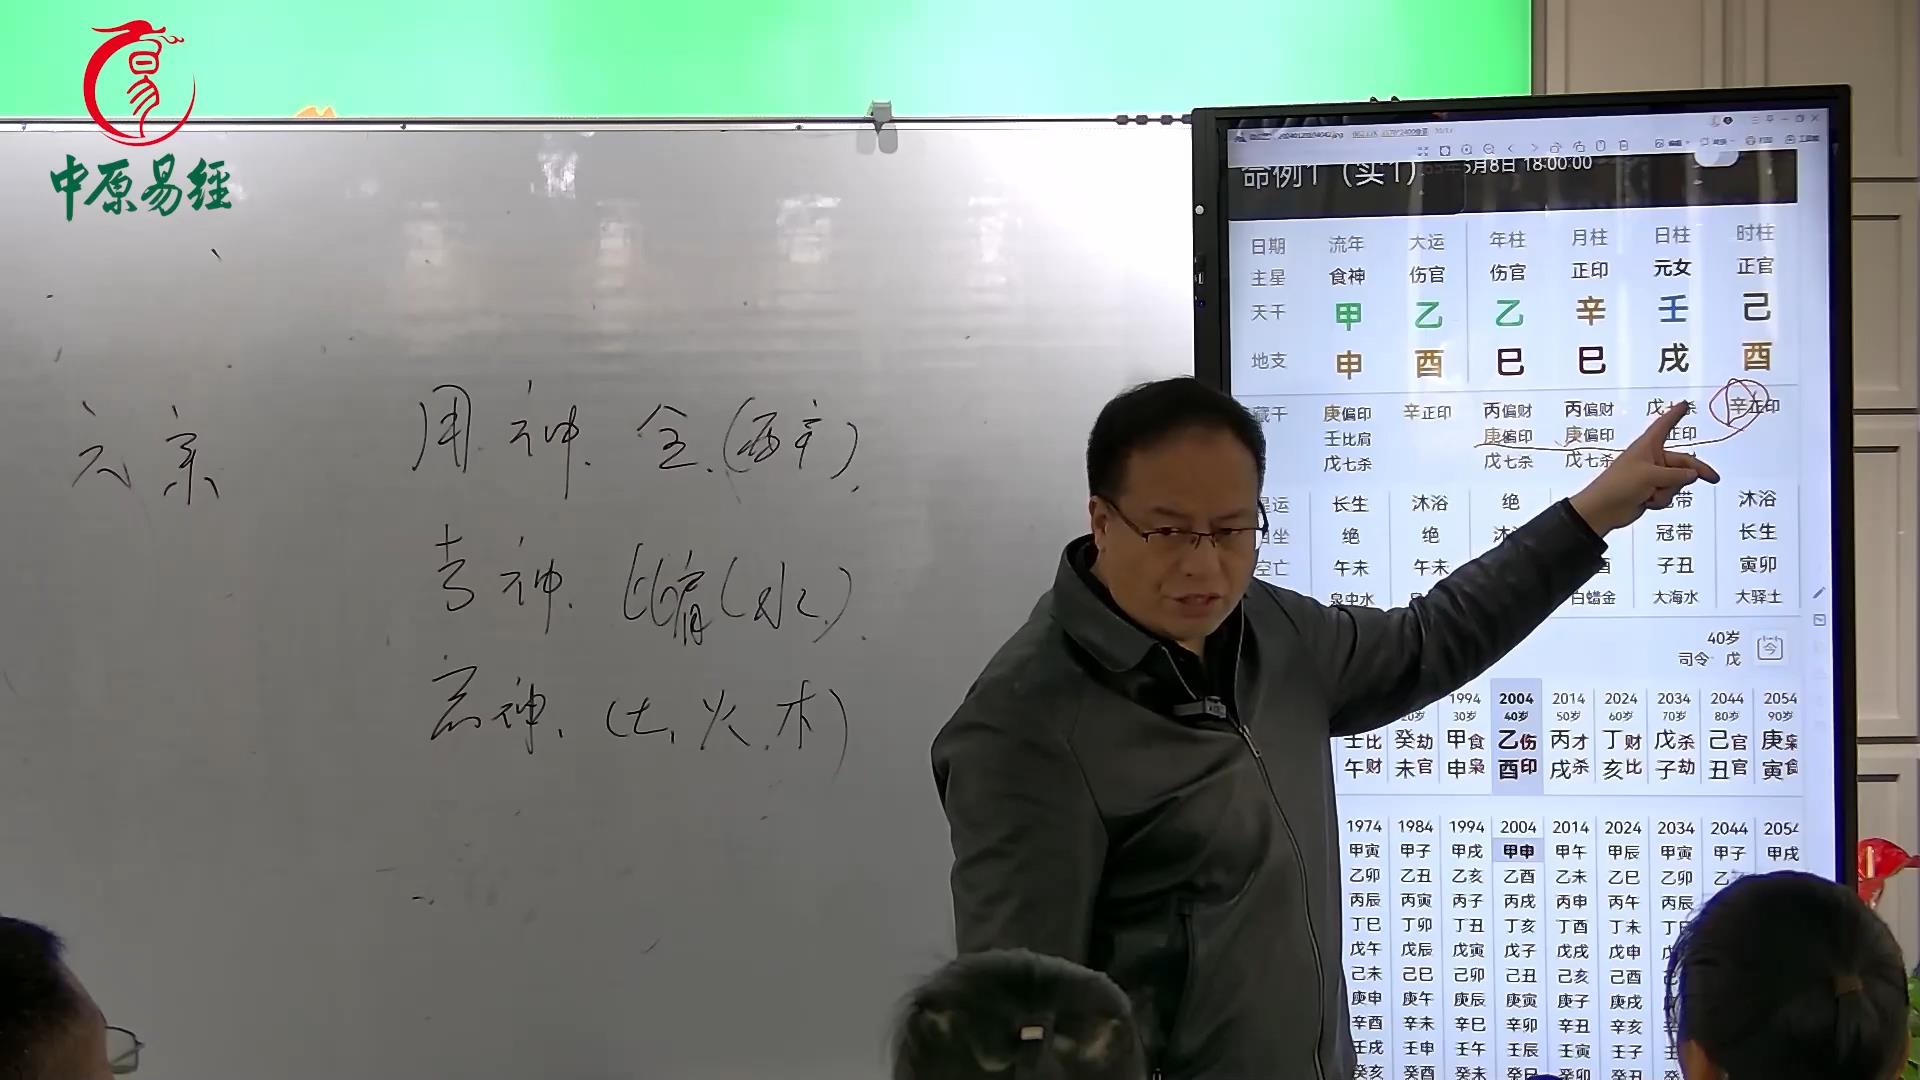 中原易經
用神 金(酉辛).
喜神. 比肩(水).
忌神. (土.火.木)
命例1（实1） 5月8日 18:00:00
日期 流年 大运 年柱 月柱 日柱 时柱
主星 食神 伤官 伤官 正印 元女 正官
天干 甲 乙 乙 辛 壬 己
地支 申 酉 巳 巳 戌 酉
藏干 庚偏印 辛正印 丙偏财 丙偏财 戊七杀 辛正印
壬比肩 庚偏印 庚偏印 正印
戊七杀 戊七杀 戊七杀
星运 长生 沐浴 绝 冠带 沐浴
自坐 绝 绝 沐浴 冠带 长生
空亡 午未 午未 酉 子丑 寅卯
泉中水 白蜡金 大海水 大驿土
40岁
司令 戊 今
1994 2004 2014 2024 2034 2044 2054
20岁 30岁 40岁 50岁 60岁 70岁 80岁 90岁
壬比 癸劫 甲食 乙伤 丙才 丁财 戊杀 己官 庚枭
午财 未官 申枭 酉印 戌杀 亥比 子劫 丑官 寅食
1974 1984 1994 2004 2014 2024 2034 2044 2054
甲寅 甲子 甲戌 甲申 甲午 甲辰 甲寅 甲子 甲戌
乙卯 乙丑 乙亥 乙酉 乙未 乙巳 乙卯 乙
丙辰 丙寅 丙子 丙戌 丙申 丙午 丙辰
丁巳 丁卯 丁丑 丁亥 丁酉 丁未 丁
戊午 戊辰 戊寅 戊子 戊戌 戊申
己未 己巳 己卯 己丑 己亥 己酉
庚申 庚午 庚辰 庚寅 庚子 庚戌
辛酉 辛未 辛巳 辛卯 辛丑 辛亥
壬戌 壬申 壬午 壬辰 壬寅 壬子 壬
癸亥 癸酉 癸未 癸巳 癸卯 癸丑